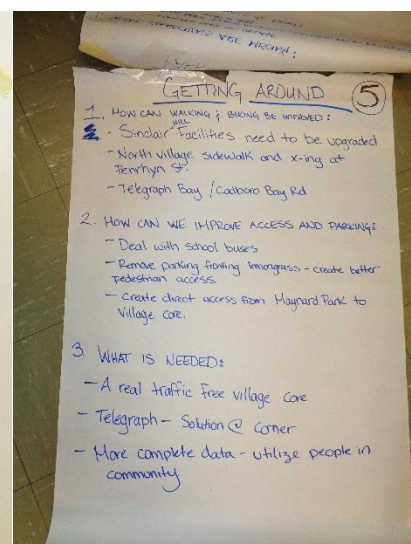 GETTING AROUND 5
1. HOW CAN WALKING & BIKING BE IMPROVED:
- Sinclair Hill Facilities need to be upgraded
- North Village sidewalk and x-ing at
Penrhyn St.
- Telegraph Bay / Cadboro Bay Rd
2. HOW CAN WE IMPROVE ACCESS AND PARKING:
- Deal with school buses
- Remove parking fronting lemongrass - create better
pedestrian access.
- create direct access from Maynard Park to
Village core.
3. WHAT IS NEEDED:
- A real traffic free village core
- Telegraph - Solution @ corner
- More complete data - utilize people in
community